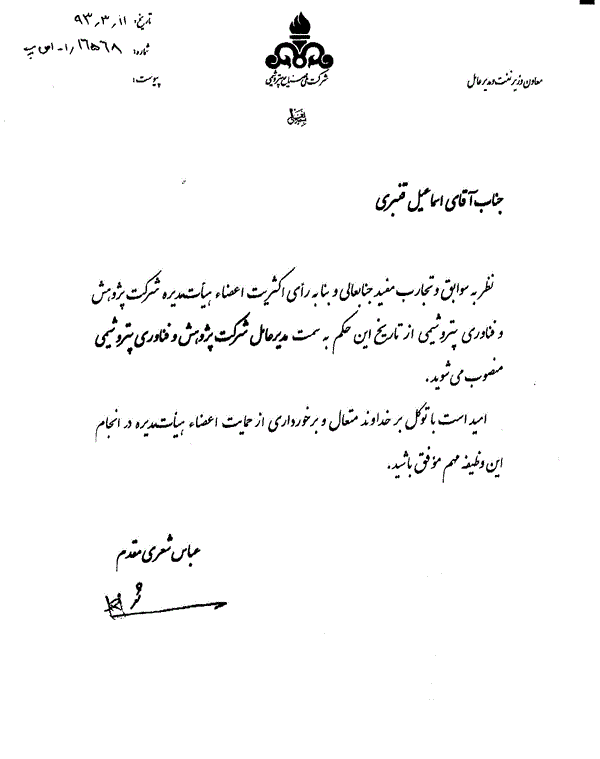 تاریخ: ۹۳٫۳٫۱۱
شماره: ۱٫۱۶۵۶۸-ص پ
پیوست:
شرکت ملی صنایع پتروشیمی
معاون وزیر نفت و مدیرعامل
بسمه تعالی
جناب آقای اسماعیل قنبری
نظر به سوابق و تجارب مفید جنابعالی و بنا به رأی اکثریت اعضاء هیأت‌مدیره شرکت پژوهش
و فناوری پتروشیمی از تاریخ این حکم به سمت مدیرعامل شرکت پژوهش و فناوری پتروشیمی
منصوب می‌شوید.
امید است با توکل بر خداوند متعال و برخورداری از حمایت اعضاء هیأت‌مدیره در انجام
این وظیفه مهم مؤفق باشید.
عباس شعری مقدم